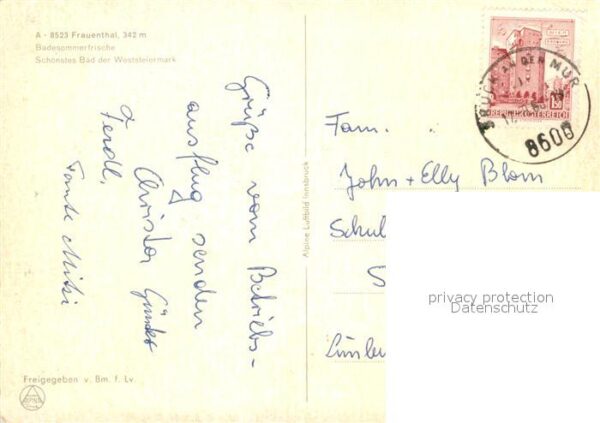 A - 8523 Frauenthal, 342 m
Badesommerfrische
Schönstes Bad der Weststeiermark
Grüße vom Betriebs-
ausflug senden
Christa Günter
Ferdl,
Tante Mitzi
Freigegeben v. Bm. f. Lv.
ALPINE
Alpine Luftbild Innsbruck
BRUCK AN DER MUR
8600
1.50
REPUBLIK ÖSTERREICH
Fam.
John + Elly Blom
Schul
privacy protection
Datenschutz